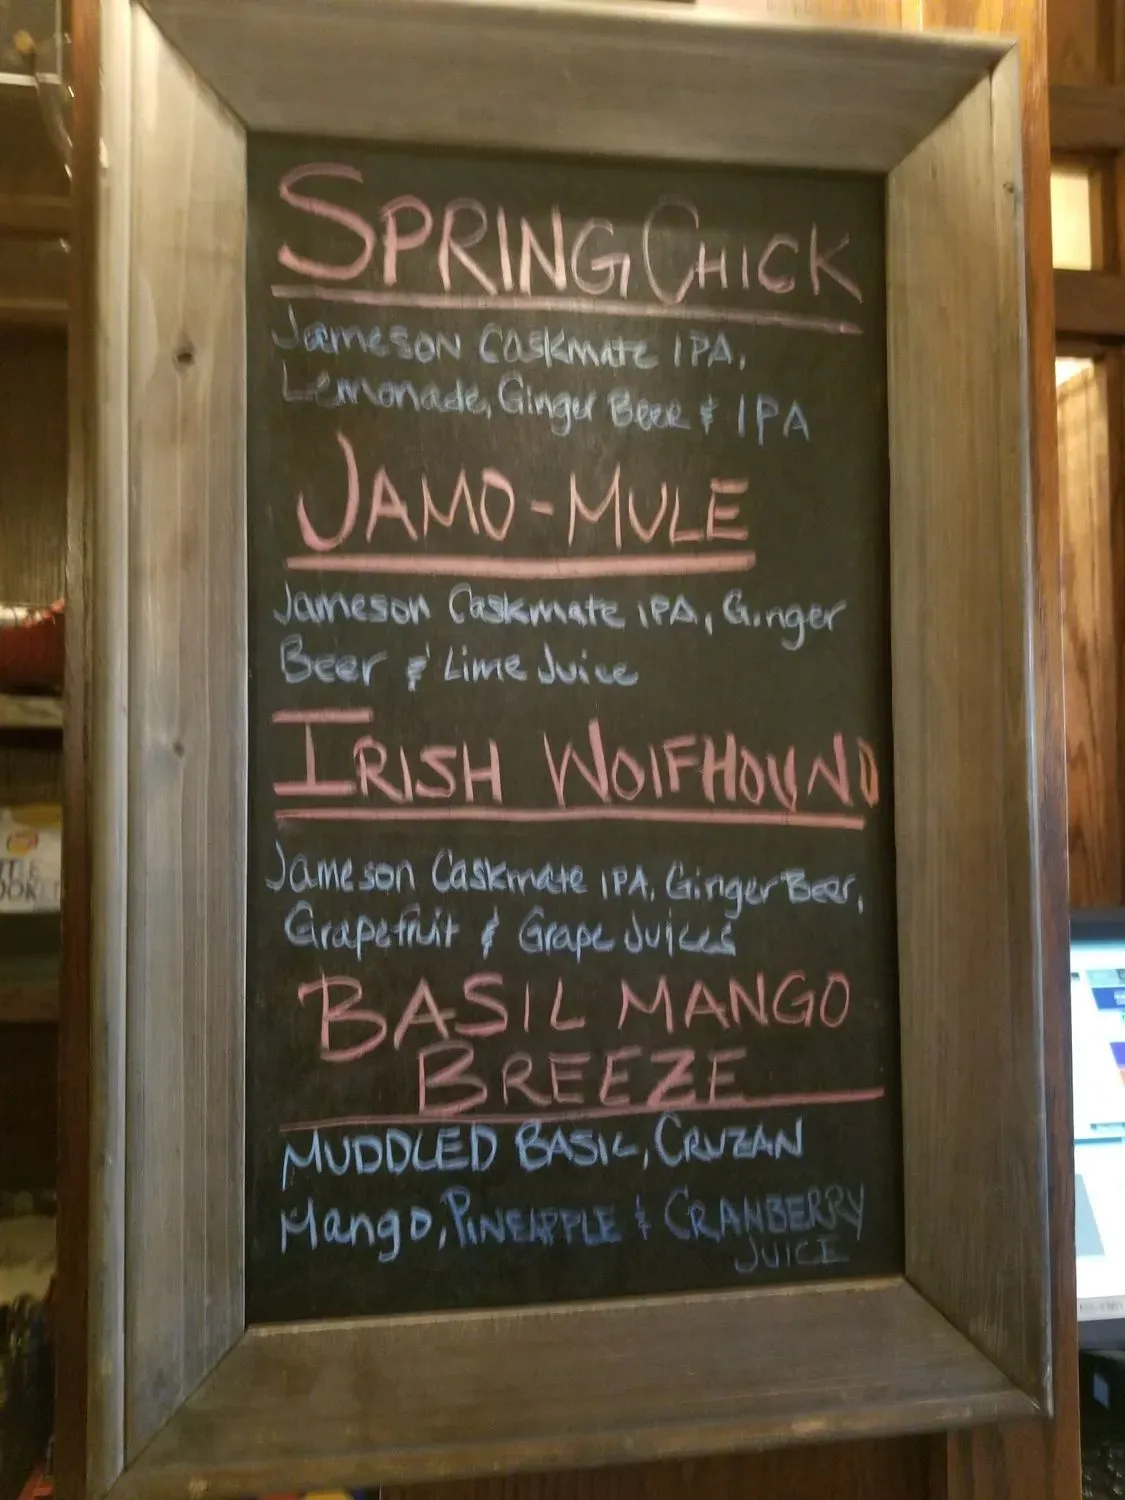 SPRING CHICK
Jameson Caskmate IPA,
Lemonade, Ginger Beer & IPA
JAMO-MULE
Jameson Caskmate IPA, Ginger
Beer & Lime Juice
IRISH WOlFHOUND
Jameson Caskmate IPA, Ginger Beer,
Grapefruit & Grape Juices
BASIL MANGO
BREEZE
MUDDLED BASIL, CRUZAN
Mango, PINEAPPLE & CRANBERRY
JUICE